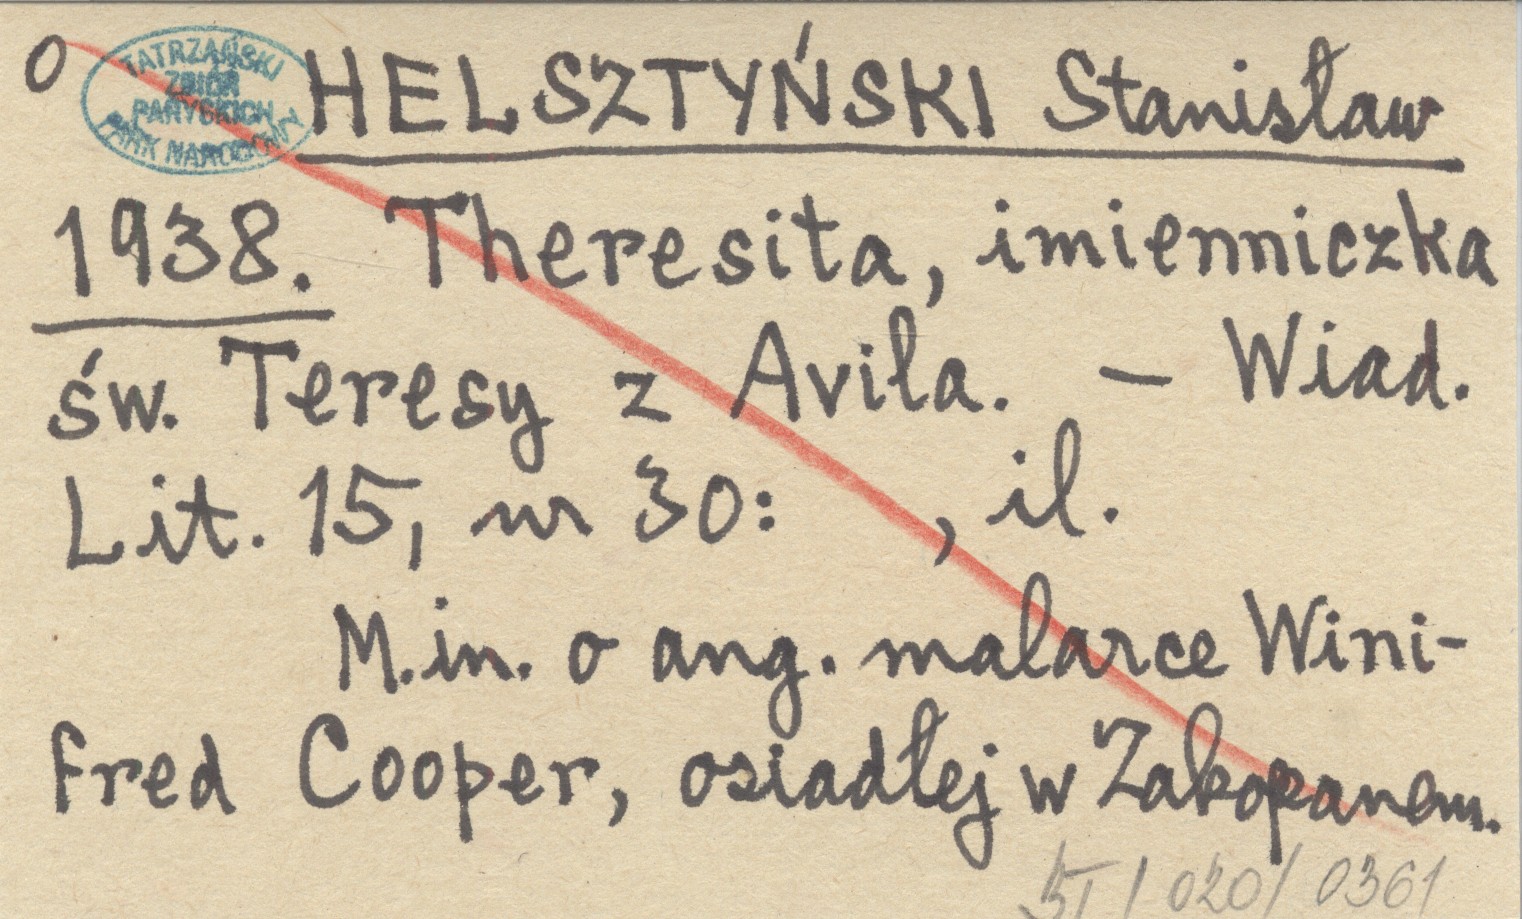 O HELSZTYŃSKI Stanisław
TATRZAŃSKI
ZBIÓR
PARYSKICH
PARK NARODOWY
1938. Theresita, imienniczka
św. Teresy z Avila. – Wiad.
Lit. 15, nr 30: , il.
M.in. o ang. malarce Wini-
fred Cooper, osiadłej w Zakopanem.
/ 020 / 0361